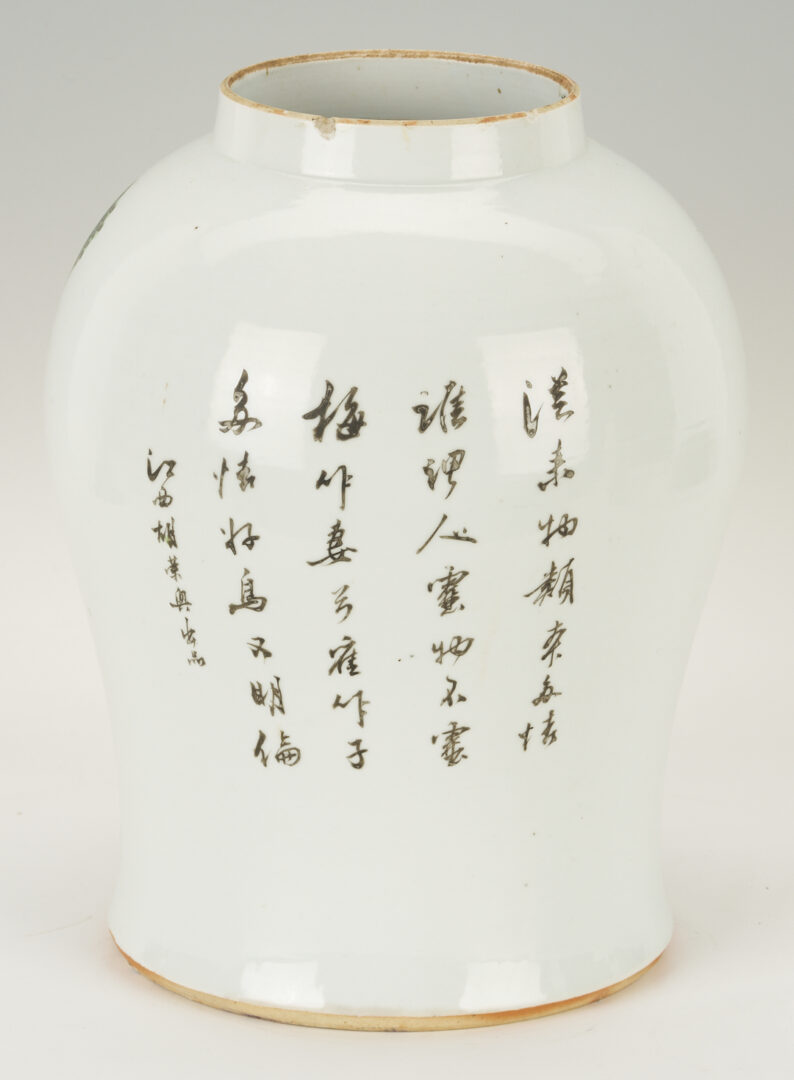 從来物類本多情
誰謂人靈物不靈
梅作妻兮隺作子
多情好鳥又明倫
江西胡榮興出品